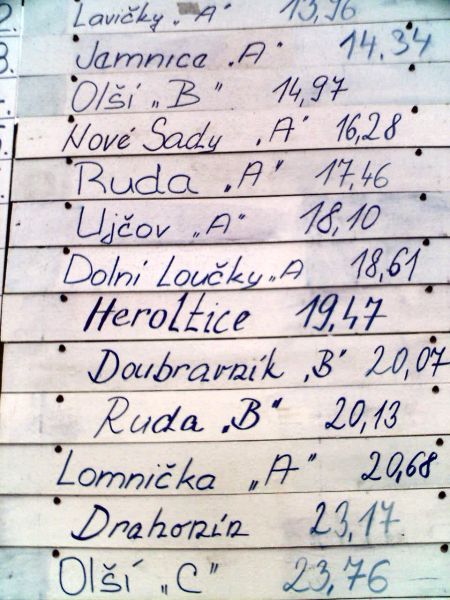 Lavičky „A" 13,96
Jamnica „A" 14.34
Olší „B" 14,97
Nové Sady „A" 16,28
Ruda „A" 17,46
Ujčov „A" 18,10
Dolní Loučky „A 18,61
Heroltice 19,47
Doubravník „B" 20,07
Ruda „B" 20,13
Lomnička „A" 20,68
Drahonín 23,17
Olší „C" 23,76